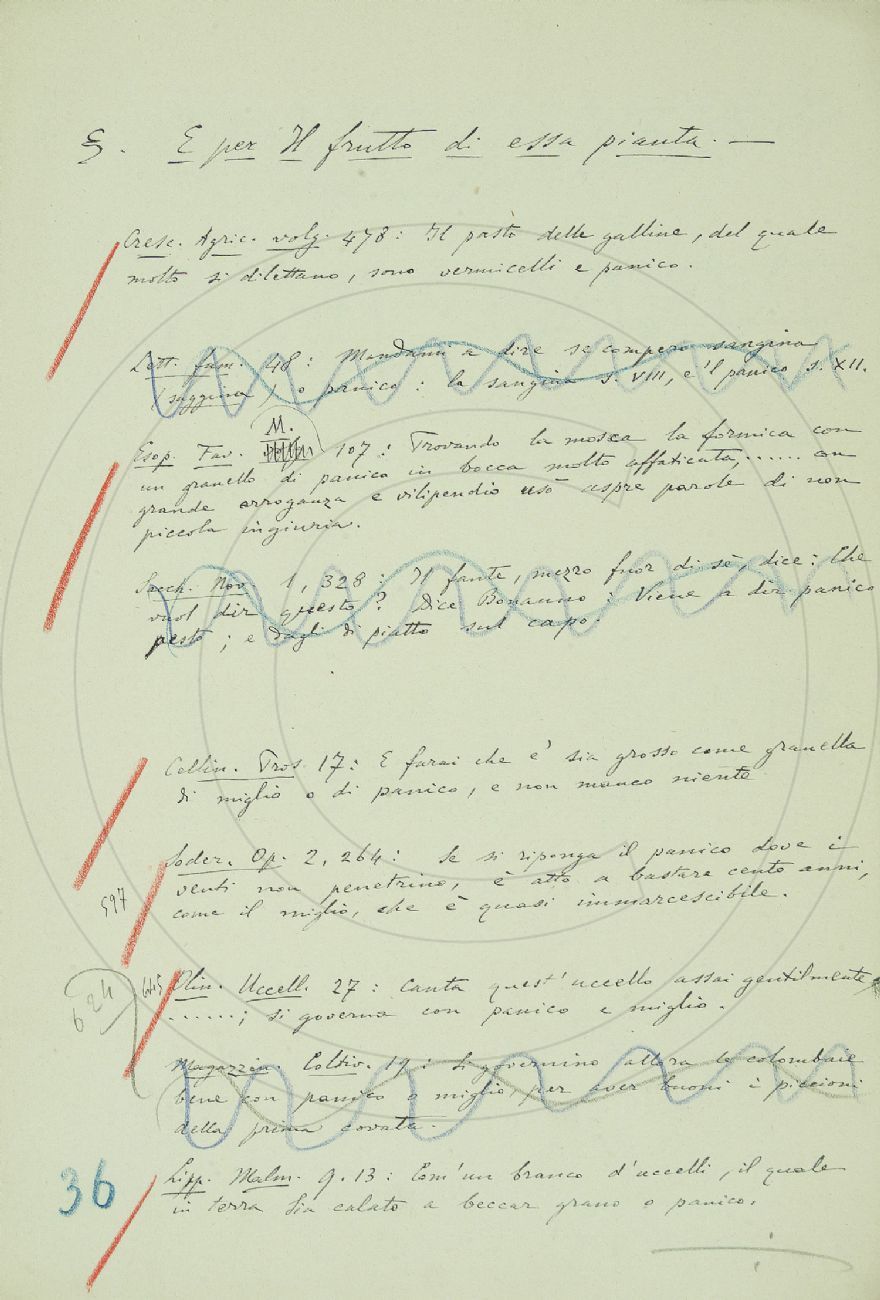 §. E per Il frutto di essa pianta. —
Cresc. Agric. volg. 478: Il pasto delle galline, del quale
molto si dilettano, sono vermicelli e panico.
Lett. fam. 48: Mandami a dire se compero sangina
(saggina) o panico: la sangina s. VIII, e'l panico s. XII.
M.
Esop. Fav. 107: Trovando la mosca la formica con
un granello di panico in bocca molto affaticata, ...... con
grande arroganza e vilipendio usò aspre parole di non
piccola ingiuria.
Sacch. Nov. 1, 328: Il fante, mezzo fuor di sè, dice: Che
vuol dir questo? Dice Bonanno: Viene a dir panico
pesto; e dagli di piatto sul capo.
Cellin. Pros. 17: E farai che e' sia grosso come granella
di miglio o di panico, e non manco niente
Soder. Op. 2, 264: Se si riponga il panico dove i
venti non penetrino, è atto a bastare cento anni,
597
come il miglio, che è quasi immarcescibile.
624
645
Olin. Uccell. 27: Canta quest'uccello assai gentilmente,
......; si governa con panico e miglio.
Magazzin. Coltiv. 19: Si governino allora le colombaie
bene con panico o miglio, per aver buoni i piccioni
della prima covata.
36
Lipp. Malm. 9.13: Com'un branco d'uccelli, il quale
in terra sia calato a beccar grano o panico.